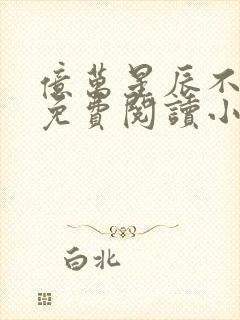 億萬星辰不
免費閱讀小
白北